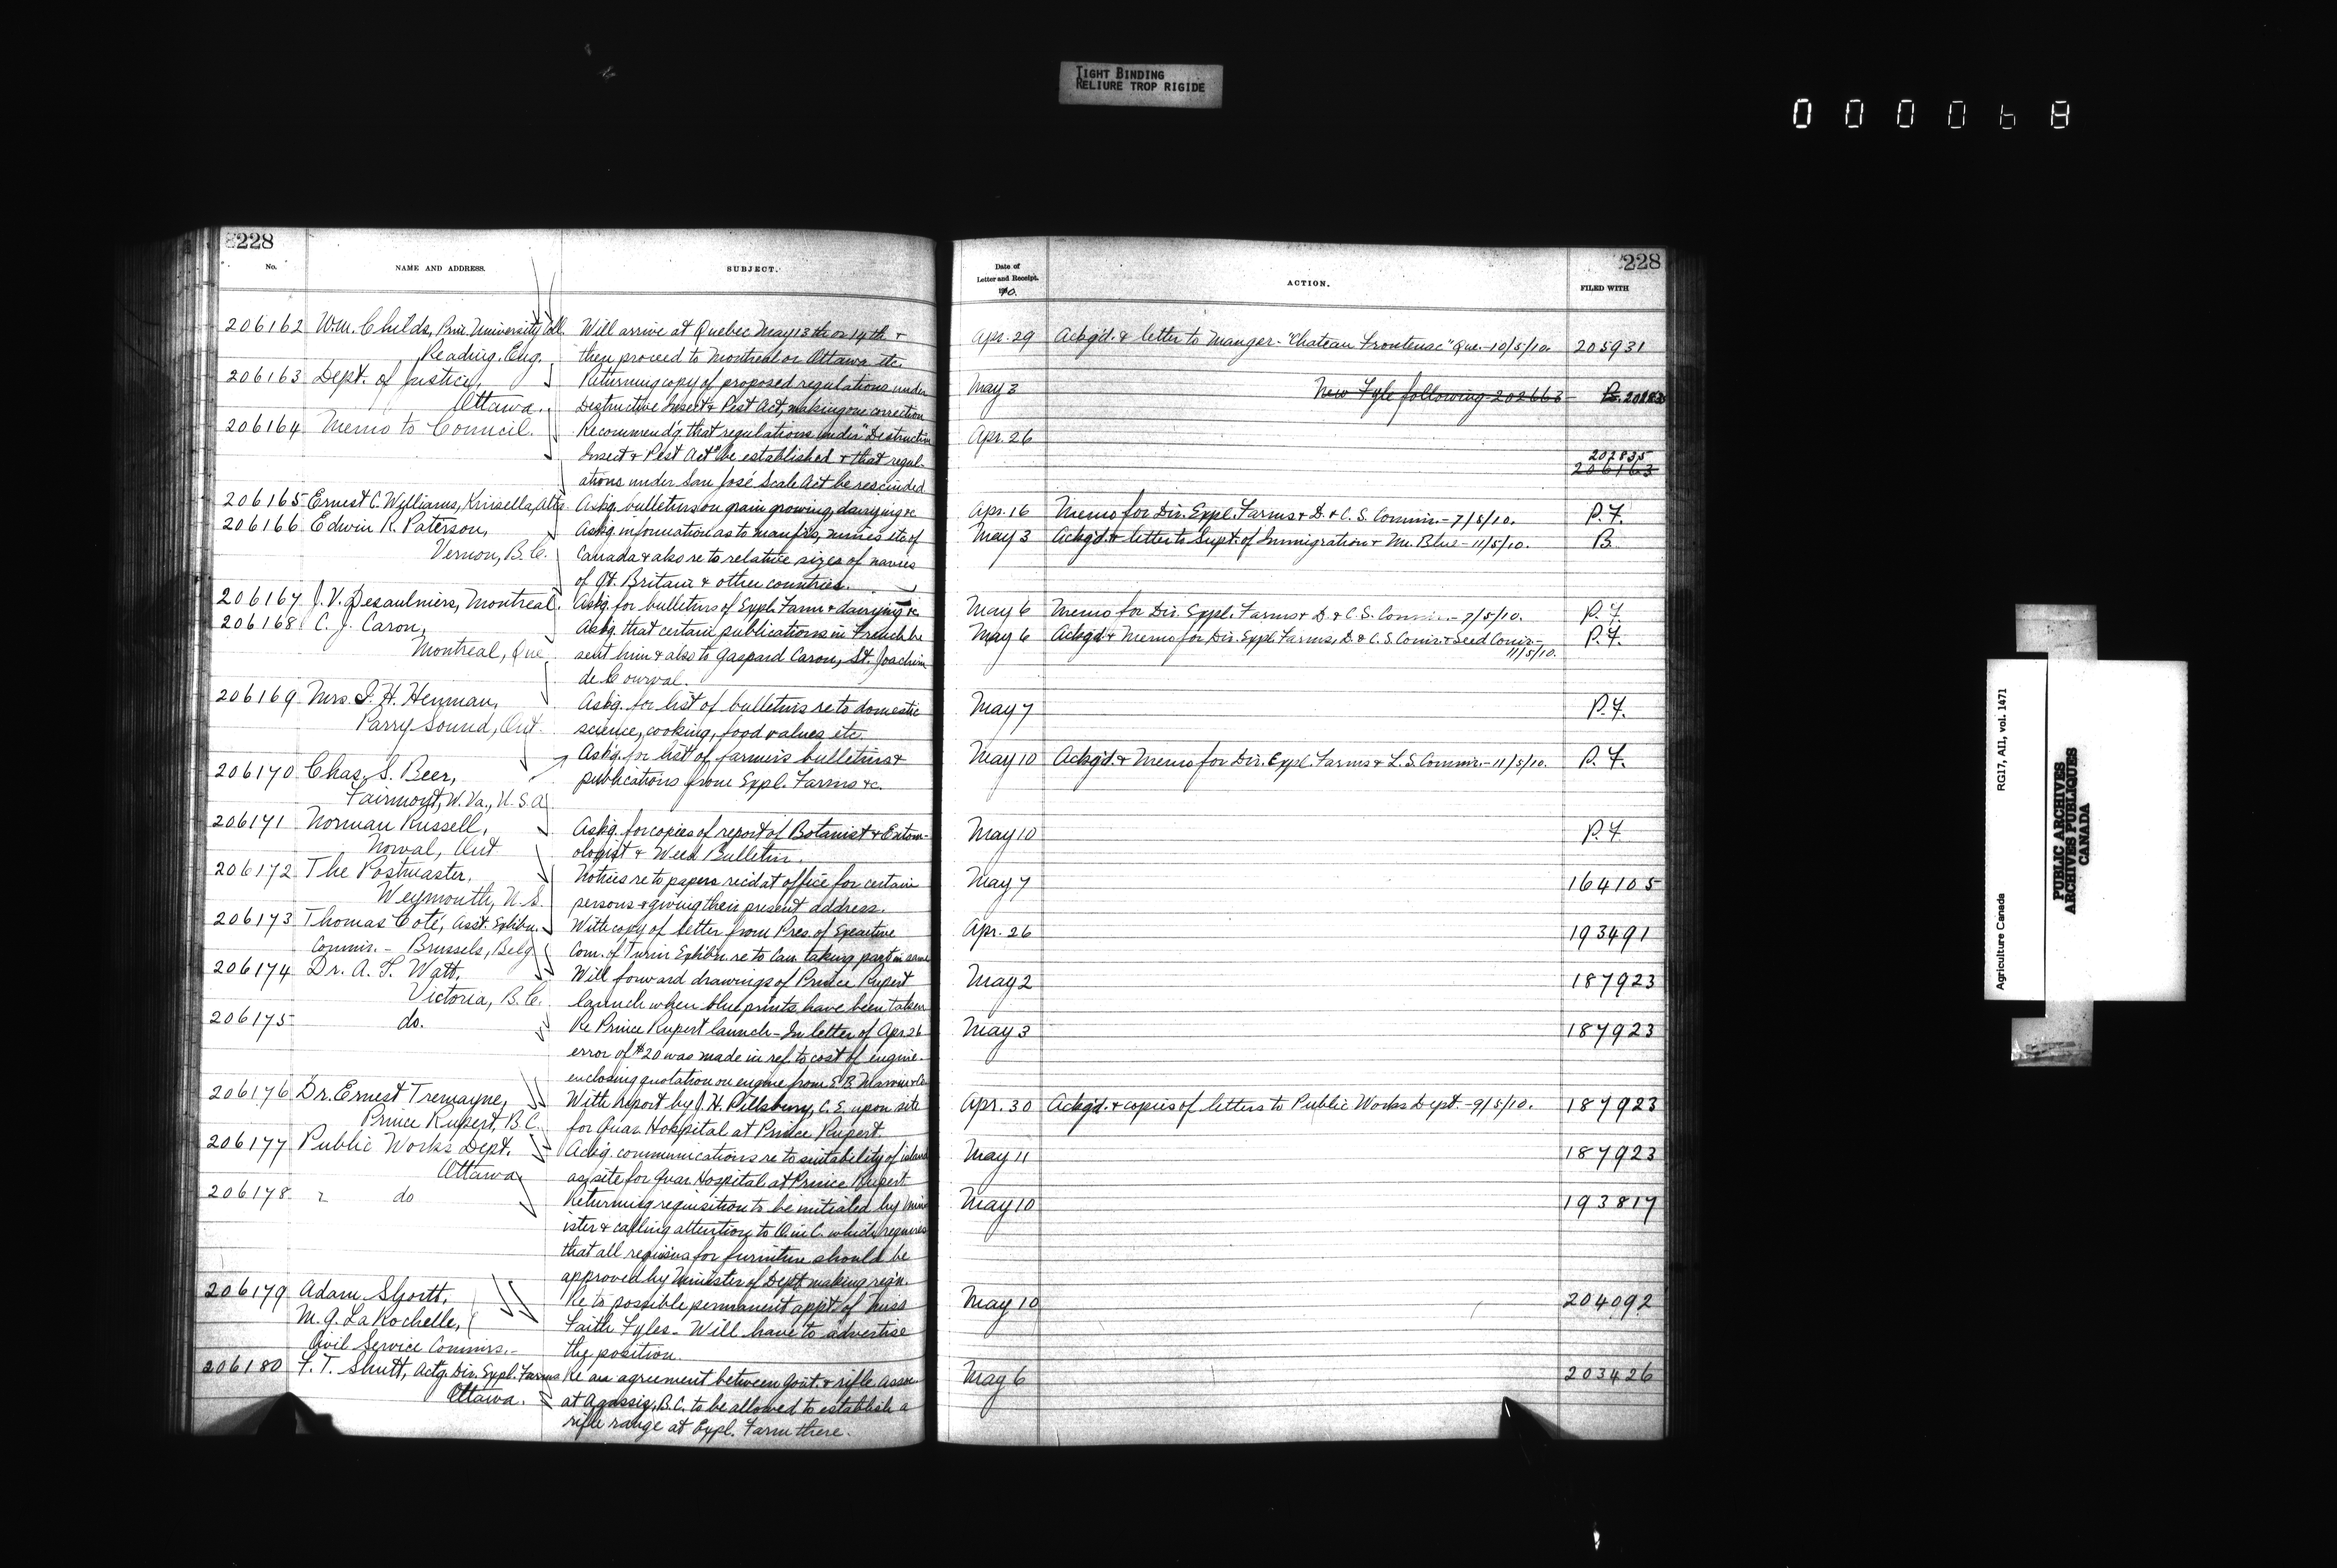 TIGHT BINDING
RELIURE TROP RIGIDE
000068
228
No.
NAME AND ADDRESS.
SUBJECT.
206162 Wm. Childs, Prin. University Coll.
Reading, Eng.
Will arrive at Quebec May 13th or 14th &
then proceed to Montreal or Ottawa etc.
206163 Dept. of Justice,
Ottawa.
Returning copy of proposed regulations under
Destructive Insect & Pest Act, making one correction
206164 Memo to Council.
Recommend'g that regulations under "Destructive
Insect & Pest Act" be established & that regul-
ations under San José Scale Act be rescinded
206165 Ernest C. Williams, Kinsella, Alta.
Askg. bulletins on grain growing, dairying &c
206166 Edwin R. Paterson,
Vernon, B.C.
Askg information as to manfrs, mines etc of
Canada & also re to relative sizes of navies
of Gt. Britain & other countries.
206167 J. V. Desaulniers, Montreal.
Askg. for bulletins of Expl. Farm & dairying &c
206168 C. J. Caron,
Montreal, Que
Askg that certain publications in French be
sent him & also to Gaspard Caron, St. Joachim
de Courval.
206169 Mrs. J. H. Henman,
Parry Sound, Ont.
Askg. for list of bulletins re to domestic
science, cooking, food values etc
206170 Chas. S. Beer,
Fairmont, W. Va., U.S.A
Askg. for list of farmers bulletins &
publications from Expl. Farms &c.
206171 Norman Russell,
Norval, Ont
Askg. for copies of report of Botanist & Entom-
ologist & Weed Bulletin.
206172 The Postmaster,
Weymouth, N.S.
Notices re to papers recd at office for certain
persons & giving their present address.
206173 Thomas Coté, Asst. Exhibn.
Commr. - Brussels, Belg
With copy of letter from Pres. of Executive
Com. of Turin Exhibn. re to Can. taking part in same
206174 Dr. A. T. Watt,
Victoria, B.C.
Will forward drawings of Prince Rupert
launch when blue prints have been taken
206175 do.
Re Prince Rupert launch - In letter of Apr. 26
error of $20 was made in ref. to cost of engine.
enclosing quotation on engine from E. B. Marvin & Co.
206176 Dr. Ernest Tremayne,
Prince Rupert, B.C.
With report by J. H. Pillsbury, C.E. upon site
for Quar. Hospital at Prince Rupert
206177 Public Works Dept.
Ottawa
Ackg. communications re to suitability of island
as site for Quar. Hospital at Prince Rupert
206178 do
Returning requisition to be initialed by Min-
ister & calling attention to O in C. which requires
that all reqisns for furniture should be
approved by Minister of Dept making reqn.
206179 Adam Shortt,
M. G. LaRochelle,
Civil Service Commrs. -
Re to possible permanent appt. of Miss
Faith Fyles - Will have to advertise
the position.
206180 F. T. Shutt, Actg. Dir. Expl. Farms
Ottawa.
Re an agreement between Govt. & rifle Assoc.
at Agassiz, B.C. to be allowed to establish a
rifle range at Expl. Farm there.
228
Date of
Letter and Receipt.
1910.
ACTION.
FILED WITH
Apr. 29 Ackg'd. & letter to Manger - "Chateau Frontenac" Que. - 10/5/10. 205931
May 3 New Fyle following 202663
Apr. 26
202835
206163
Apr. 16 Memo for Dir. Expl. Farms & D. & C. S. Commr. - 7/5/10. P.F.
May 3 Ackg'd. & letter to Supt. of Immigration & Mr. Blue - 11/5/10. B
May 6 Memo for Dir. Expl. Farms & D. & C.S. Commr. - 7/5/10. P.F.
May 6 Ackg'd & Memo for Dir. Expl. Farms, D. & C. S. Comr. & Seed Comr. -
11/5/10. P.F.
May 7 P.F.
May 10 Ackg'd. & Memo for Dir. Expl. Farms & L. S. Commr. - 11/5/10. P.F.
May 10 P.F.
May 7 164105
Apr. 26 193491
May 2 187923
May 3 187923
Apr. 30 Ackg'd. & copies of letters to Public Works Dept. - 9/5/10. 187923
May 11 187923
May 10 193817
May 10 204092
May 6 203426
Agriculture Canada
RG17, AII, vol. 1471
PUBLIC ARCHIVES
ARCHIVES PUBLIQUES
CANADA